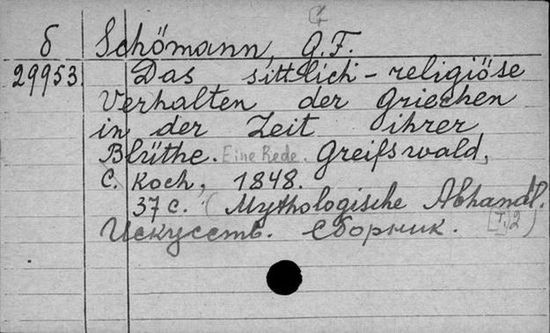 б Schömann, G.F.
29953. Das sittlich-religiöse
Verhalten der Griechen
in der Zeit ihrer
Blüthe. Eine Rede. Greifswald,
C. Koch, 1848.
37 с. (Mythologische Abhandl.
Искусств. Сборник. [I,2)